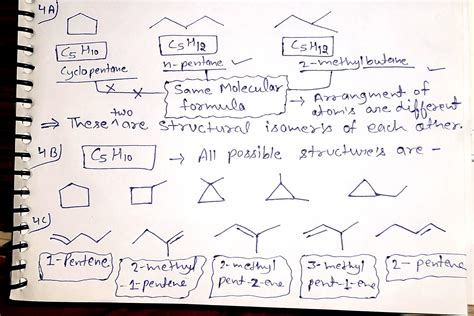 4A)
C5H10
C5H12
C5H12
Cyclopentane
n-pentane
2-methylbutane
Same Molecular
formula
→ Arrangment of
atoms are different
⇒ These two are structural isomers of each other.
4B) C5H10 → All possible structures are -
4C)
1-Pentene
2-methyl
-1-pentene
2-methyl
pent-2-ene
3-methyl
pent-1-ene
2-pentene